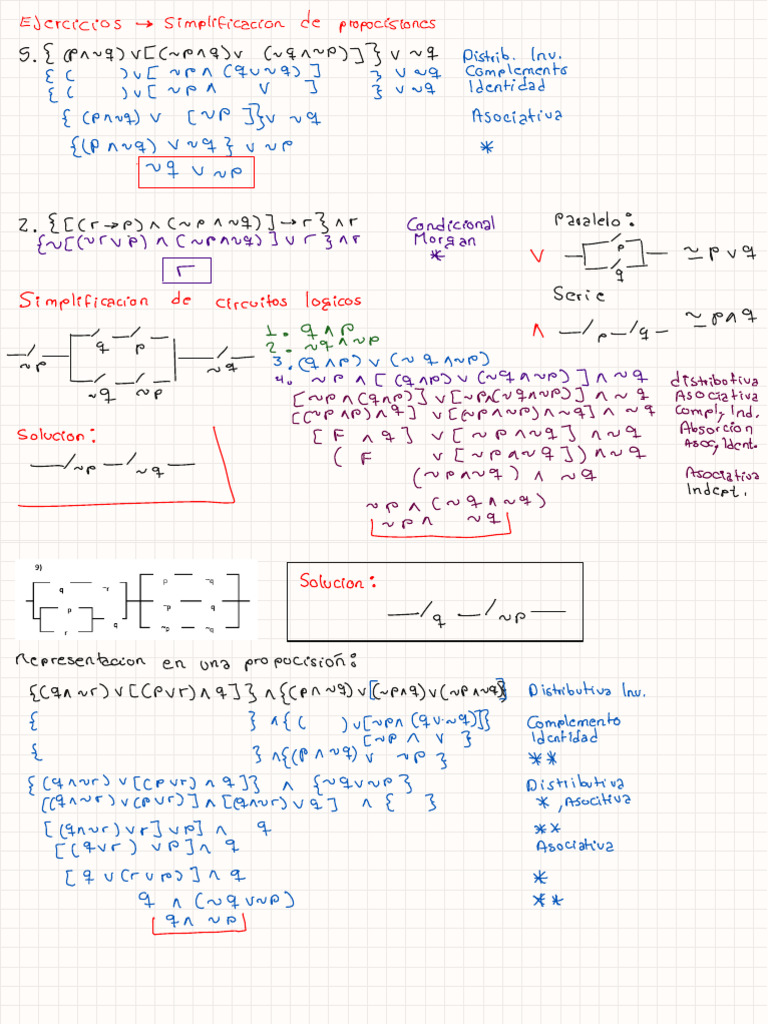 Ejercicios → Simplificacion de propocisiones
5. { (p∧~q)∨[(~p∧q)∨ (~q∧~p)]} ∨ ~q Distrib. Inv.
{ ( )∨[ ~p∧ (q∨~q) ] } ∨ ~q Complemento
{ ( )∨[ ~p∧ V ] } ∨ ~q Identidad
{ (p∧~q)∨ [~p]}∨ ~q Asociativa
{(p∧~q) ∨~q} ∨ ~p *
~q ∨ ~p
2. {[(r→p)∧(~p∧~q)]→r}∧r Condicional
{~[(~r∨p)∧(~p∧~q)]∨r}∧r Morgan
*
r
Paralelo:
∨ p q ≃ p∨q
Serie
∧ p q ≃ p∧q
Simplificacion de circuitos logicos
~p q p ~q ~p ~q
1. q∧p
2. ~q∧~p
3. (q∧p) ∨ (~q∧~p)
4. ~p∧[(q∧p)∨(~q∧~p)]∧~q distribotiva
[~p∧(q∧p)]∨[~p∧(~q∧~p)]∧~q Asociativa
[(~p∧p)∧q] ∨[(~p∧~p)∧~q]∧~q Compl, Ind.
[F ∧q] ∨[~p∧~q]∧~q Absorcion
Asoc, Ident.
( F ∨[~p∧~q])∧~q
(~p∧~q) ∧ ~q Asociativa
Indept.
~p∧(~q∧~q)
~p∧ ~q
Solucion:
~p ~q
9)
q ~r p ~q
p ~p q
r q ~p ~q
Solucion:
q ~p
Representacion en una propocisión:
{(q∧~r)∨[(p∨r)∧q]}∧{(p∧~q)∨[(~p∧q)∨(~p∧~q)]} Distributiva Inv.
{ } ∧{( )∨[~p∧(q∨~q)]} Complemento
[~p∧ V } Identidad
{ } ∧{(p∧~q)∨ ~p} **
{(q∧~r)∨[(p∨r)∧q]} ∧ {~q∨~p} Distributiva
[(q∧~r)∨(p∨r)]∧[(q∧~r)∨q] ∧ { } *, Asocitiva
[(q∧~r)∨r]∨p]∧ q **
[(q∨r) ∨p]∧q Asociativa
[q∨(r∨p)]∧q *
q ∧(~q∨~p) **
q∧ ~p